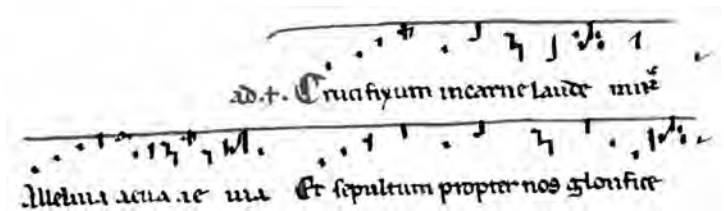 ad .+. Crucifixum incarne laude
Alleluia Et sepultum propter nos glorifice